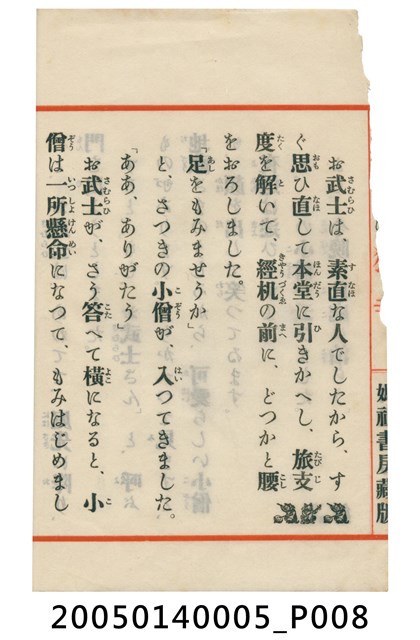 お武士は素直な人でしたから、す
ぐ思ひ直して本堂に引きかへし、旅支
度を解いて、經机の前に、どつかと腰
をおろしました。
「足をもみませうか」
と、さつきの小僧が、入つてきました。
「ああ、ありがたう」
お武士が、さう答へて横になると、小
僧は一所懸命になつて、もみはじめまし
書房藏版
20050140005_P008